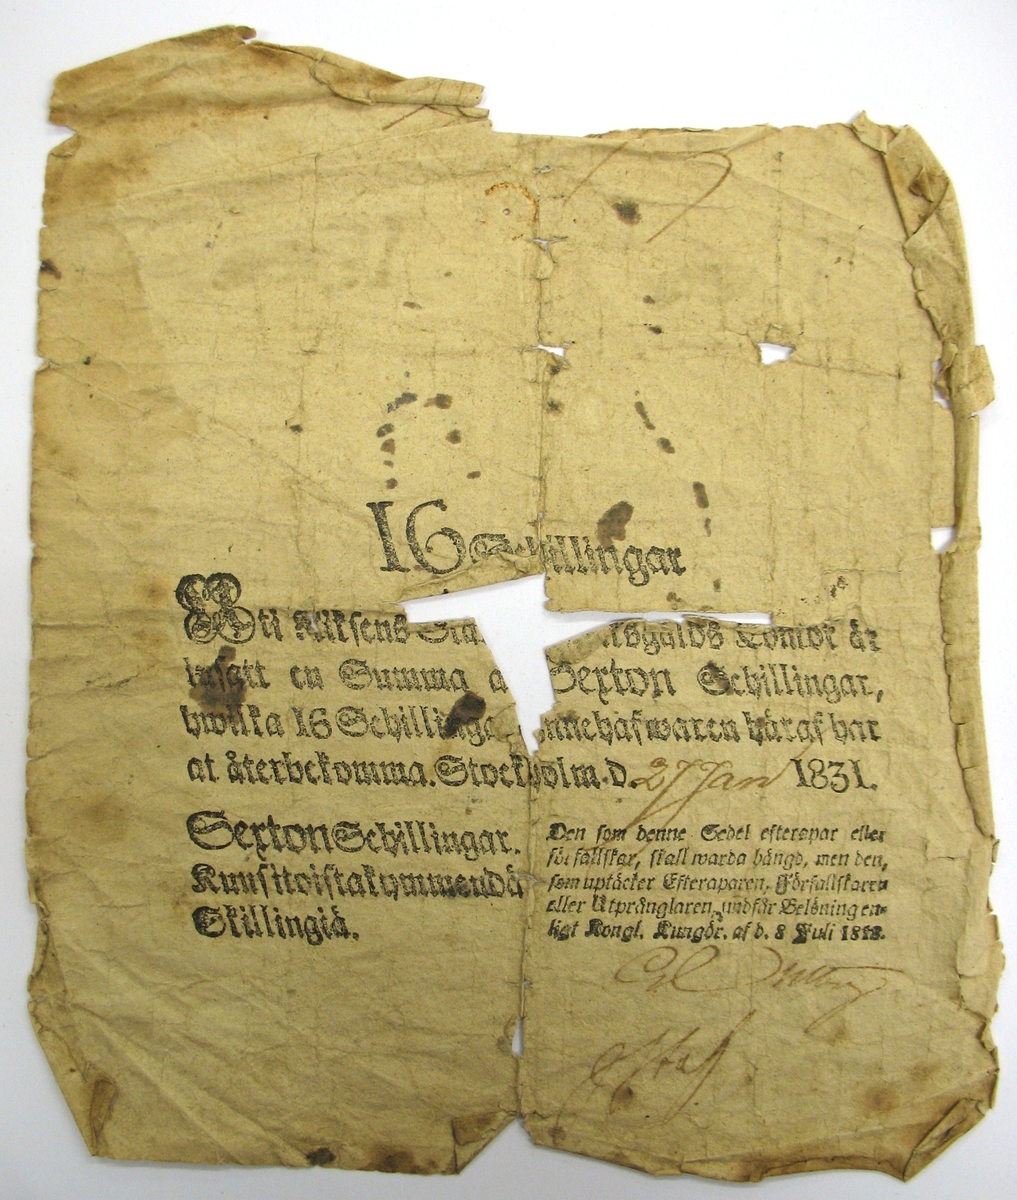 16 Schillingar
Uti Riksens Stä… …ntsgälds Contor är
insatt en Summa a… Sexton Schillingar,
hwilka 16 Schillinga… innehafwaren häraf har
at återbekomma. Stockholm d. 27 Jan 1831.
Sexton Schillingar.
Kuusitoistakymmendä
Skillingiä.
Den som denne Sedel efterapar eller
förfalskar, skall warda hängd, men den,
som uptäcker Efteraparen, Förfalskaren
eller Utprånglaren, undfår Belöning en-
ligt Kongl. Kungör. af d. 8 Juli 1818.